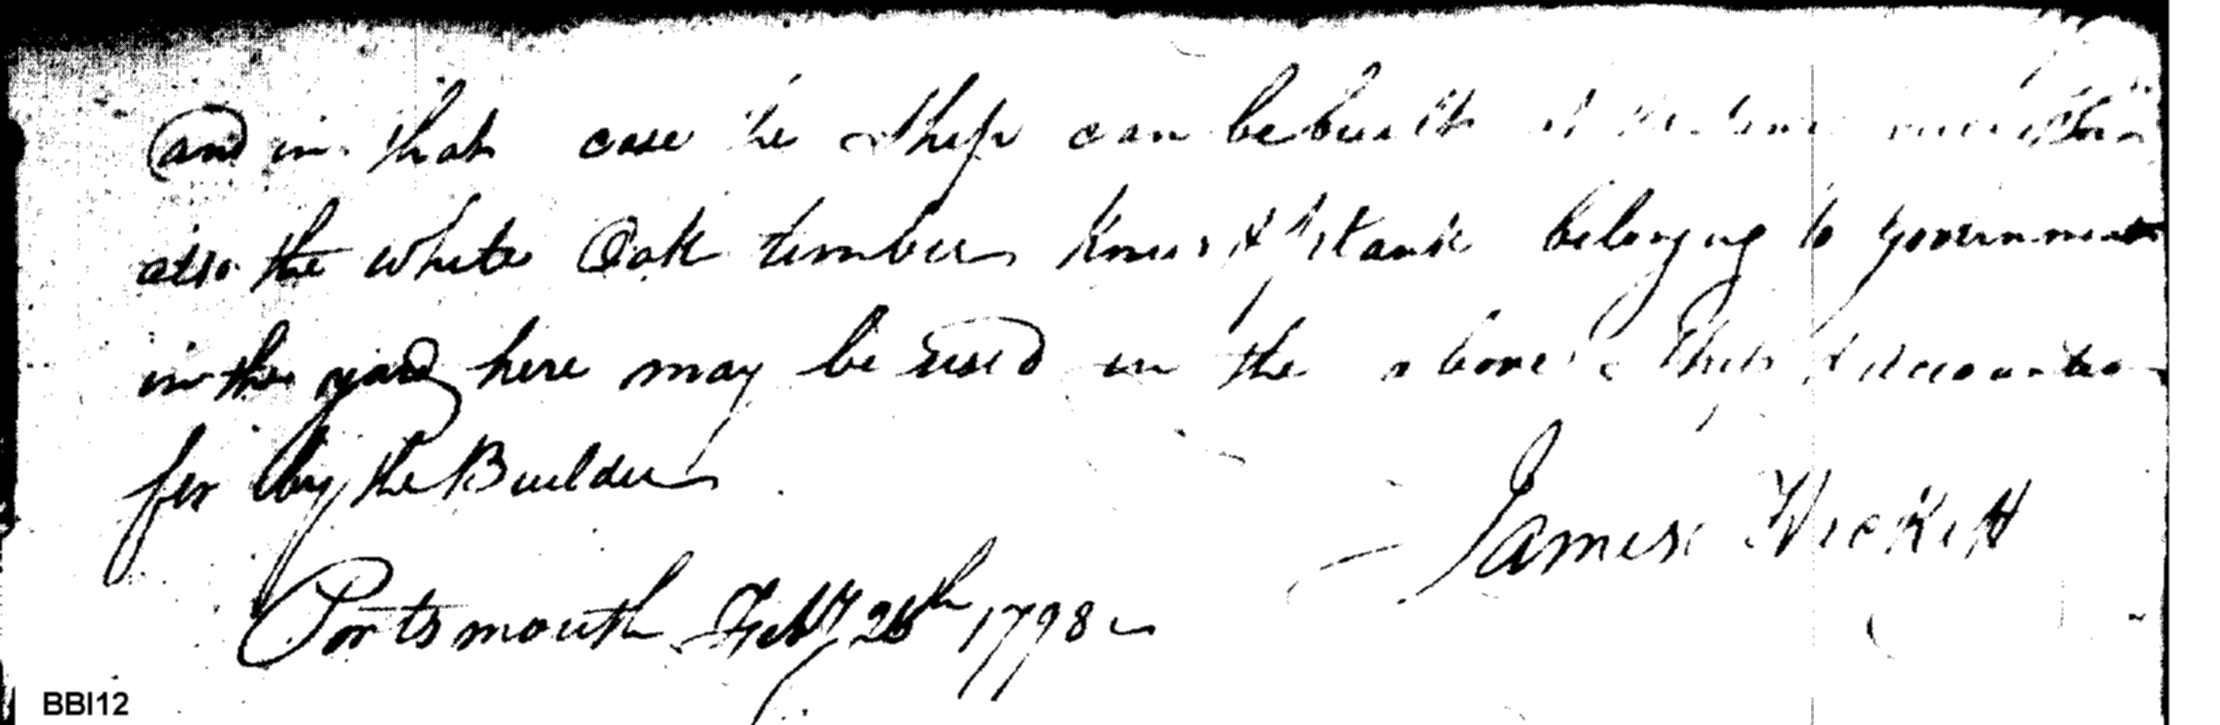 and in that case the Ship can be built
also the white Oak timber Knees & Plank belonging to government
in the yard here may be used in the above Ship & accounted
for by the Builder
James Hackett
Portsmouth Feby 26th 1798
BBI12